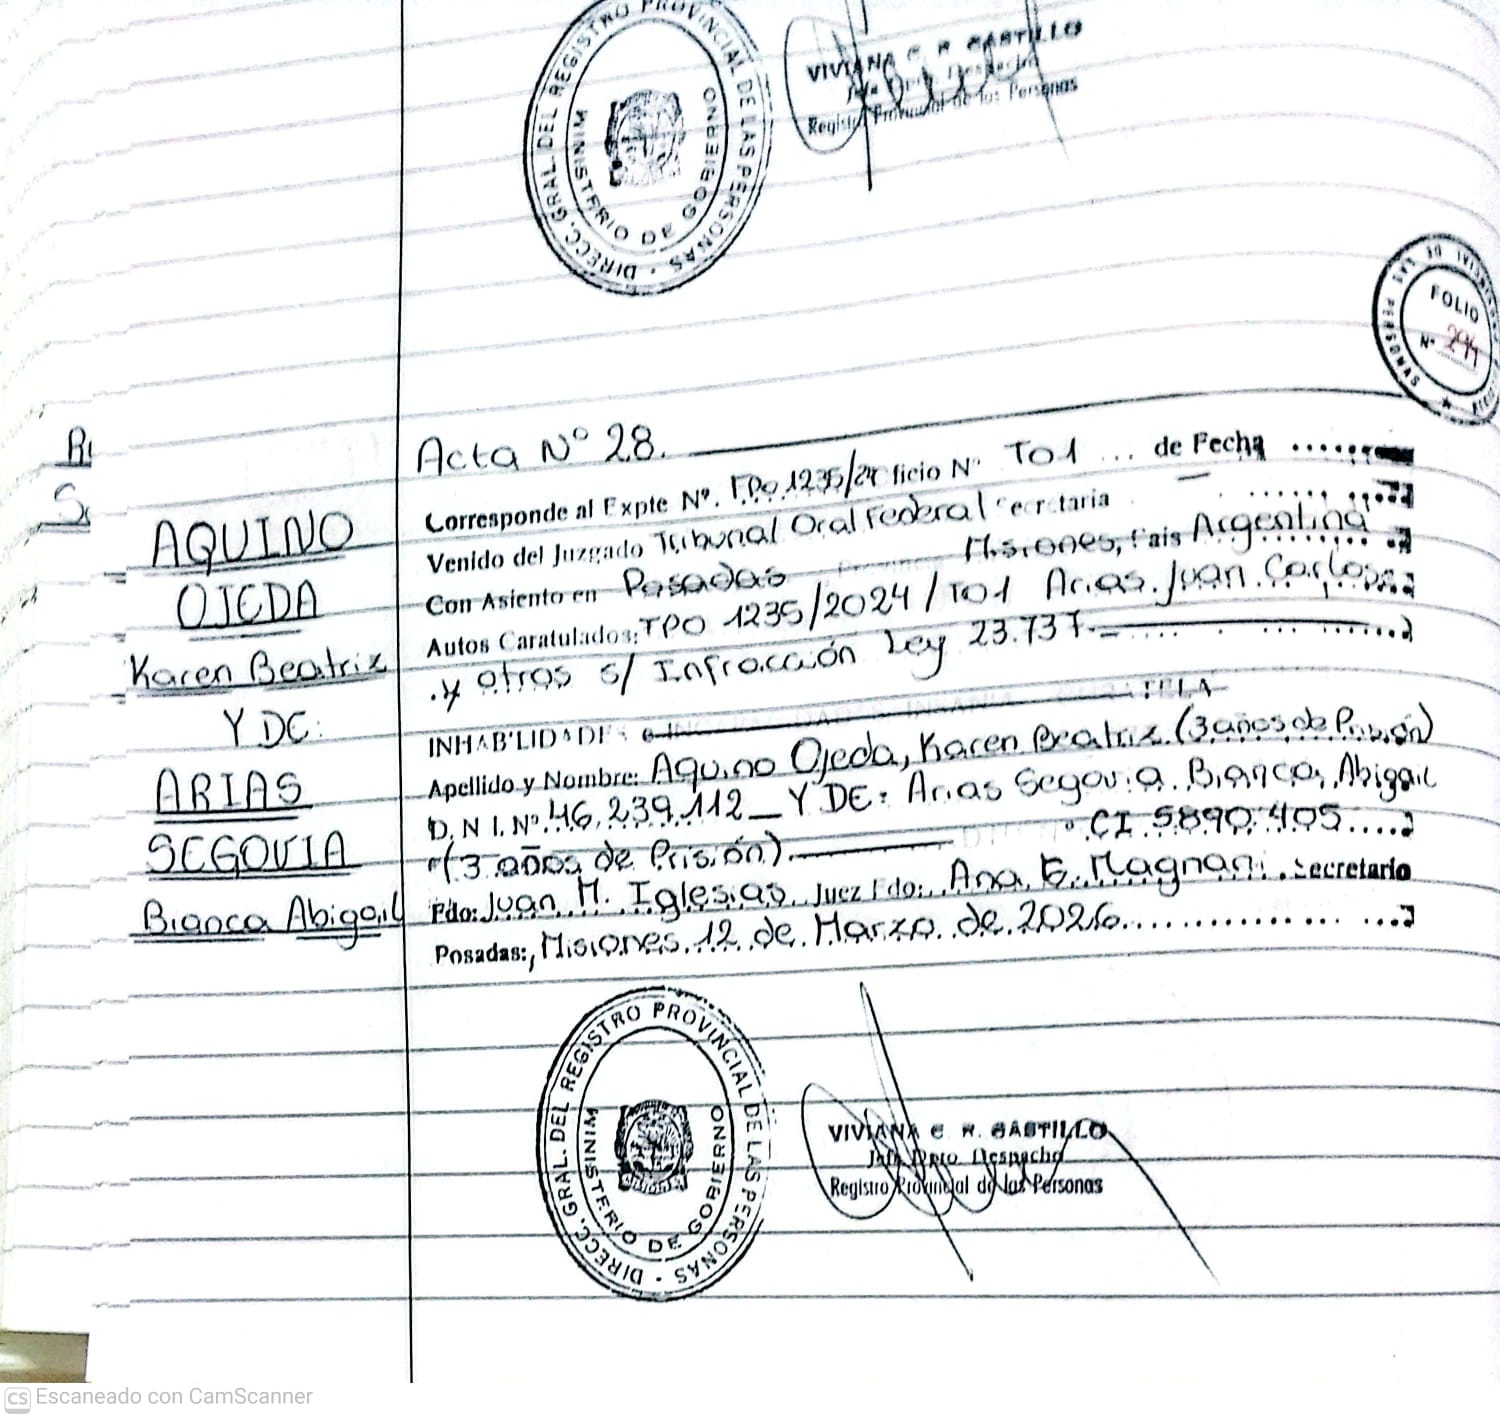 DIRECC. GRAL. DEL REGISTRO PROVINCIAL DE LAS PERSONAS
MINISTERIO DE GOBIERNO
VIVIANA C. R. CASTILLO
Jefa Dpto. Despacho
Registro Provincial de las Personas
FOLIO
N° 294
Acta N° 28.
Corresponde al Expte Nº. FPO 1235/24 ficio N° TO1 ... de Fecha
Venido del Juzgado Tribunal Oral Federal Secretaria —
Con Asiento en Posadas Provincia Misiones, País Argentina
Autos Caratulados: FPO 1235/2024/TO1 Arias Juan Carlos
y otros s/ Infracción Ley 23.737.—
INHABILIDADES
Apellido y Nombre: Aquino Ojeda, Karen Beatriz (3 años de Prisión)
D.N.I. Nº 46.239.112 — Y DE: Arias Segovia Bianca, Abigail
(3 años de Prisión). CI 5890.405
Fdo: Juan M. Iglesias Juez Fdo: Ana E. Magnani Secretario
Posadas:, Misiones 12 de Marzo de 2026
AQUINO
OJEDA
Karen Beatriz
Y DE:
ARIAS
SEGOVIA
Bianca Abigail
DIRECC. GRAL. DEL REGISTRO PROVINCIAL DE LAS PERSONAS
MINISTERIO DE GOBIERNO
VIVIANA C. R. CASTILLO
Jefa Dpto. Despacho
Registro Provincial de las Personas
CS Escaneado con CamScanner